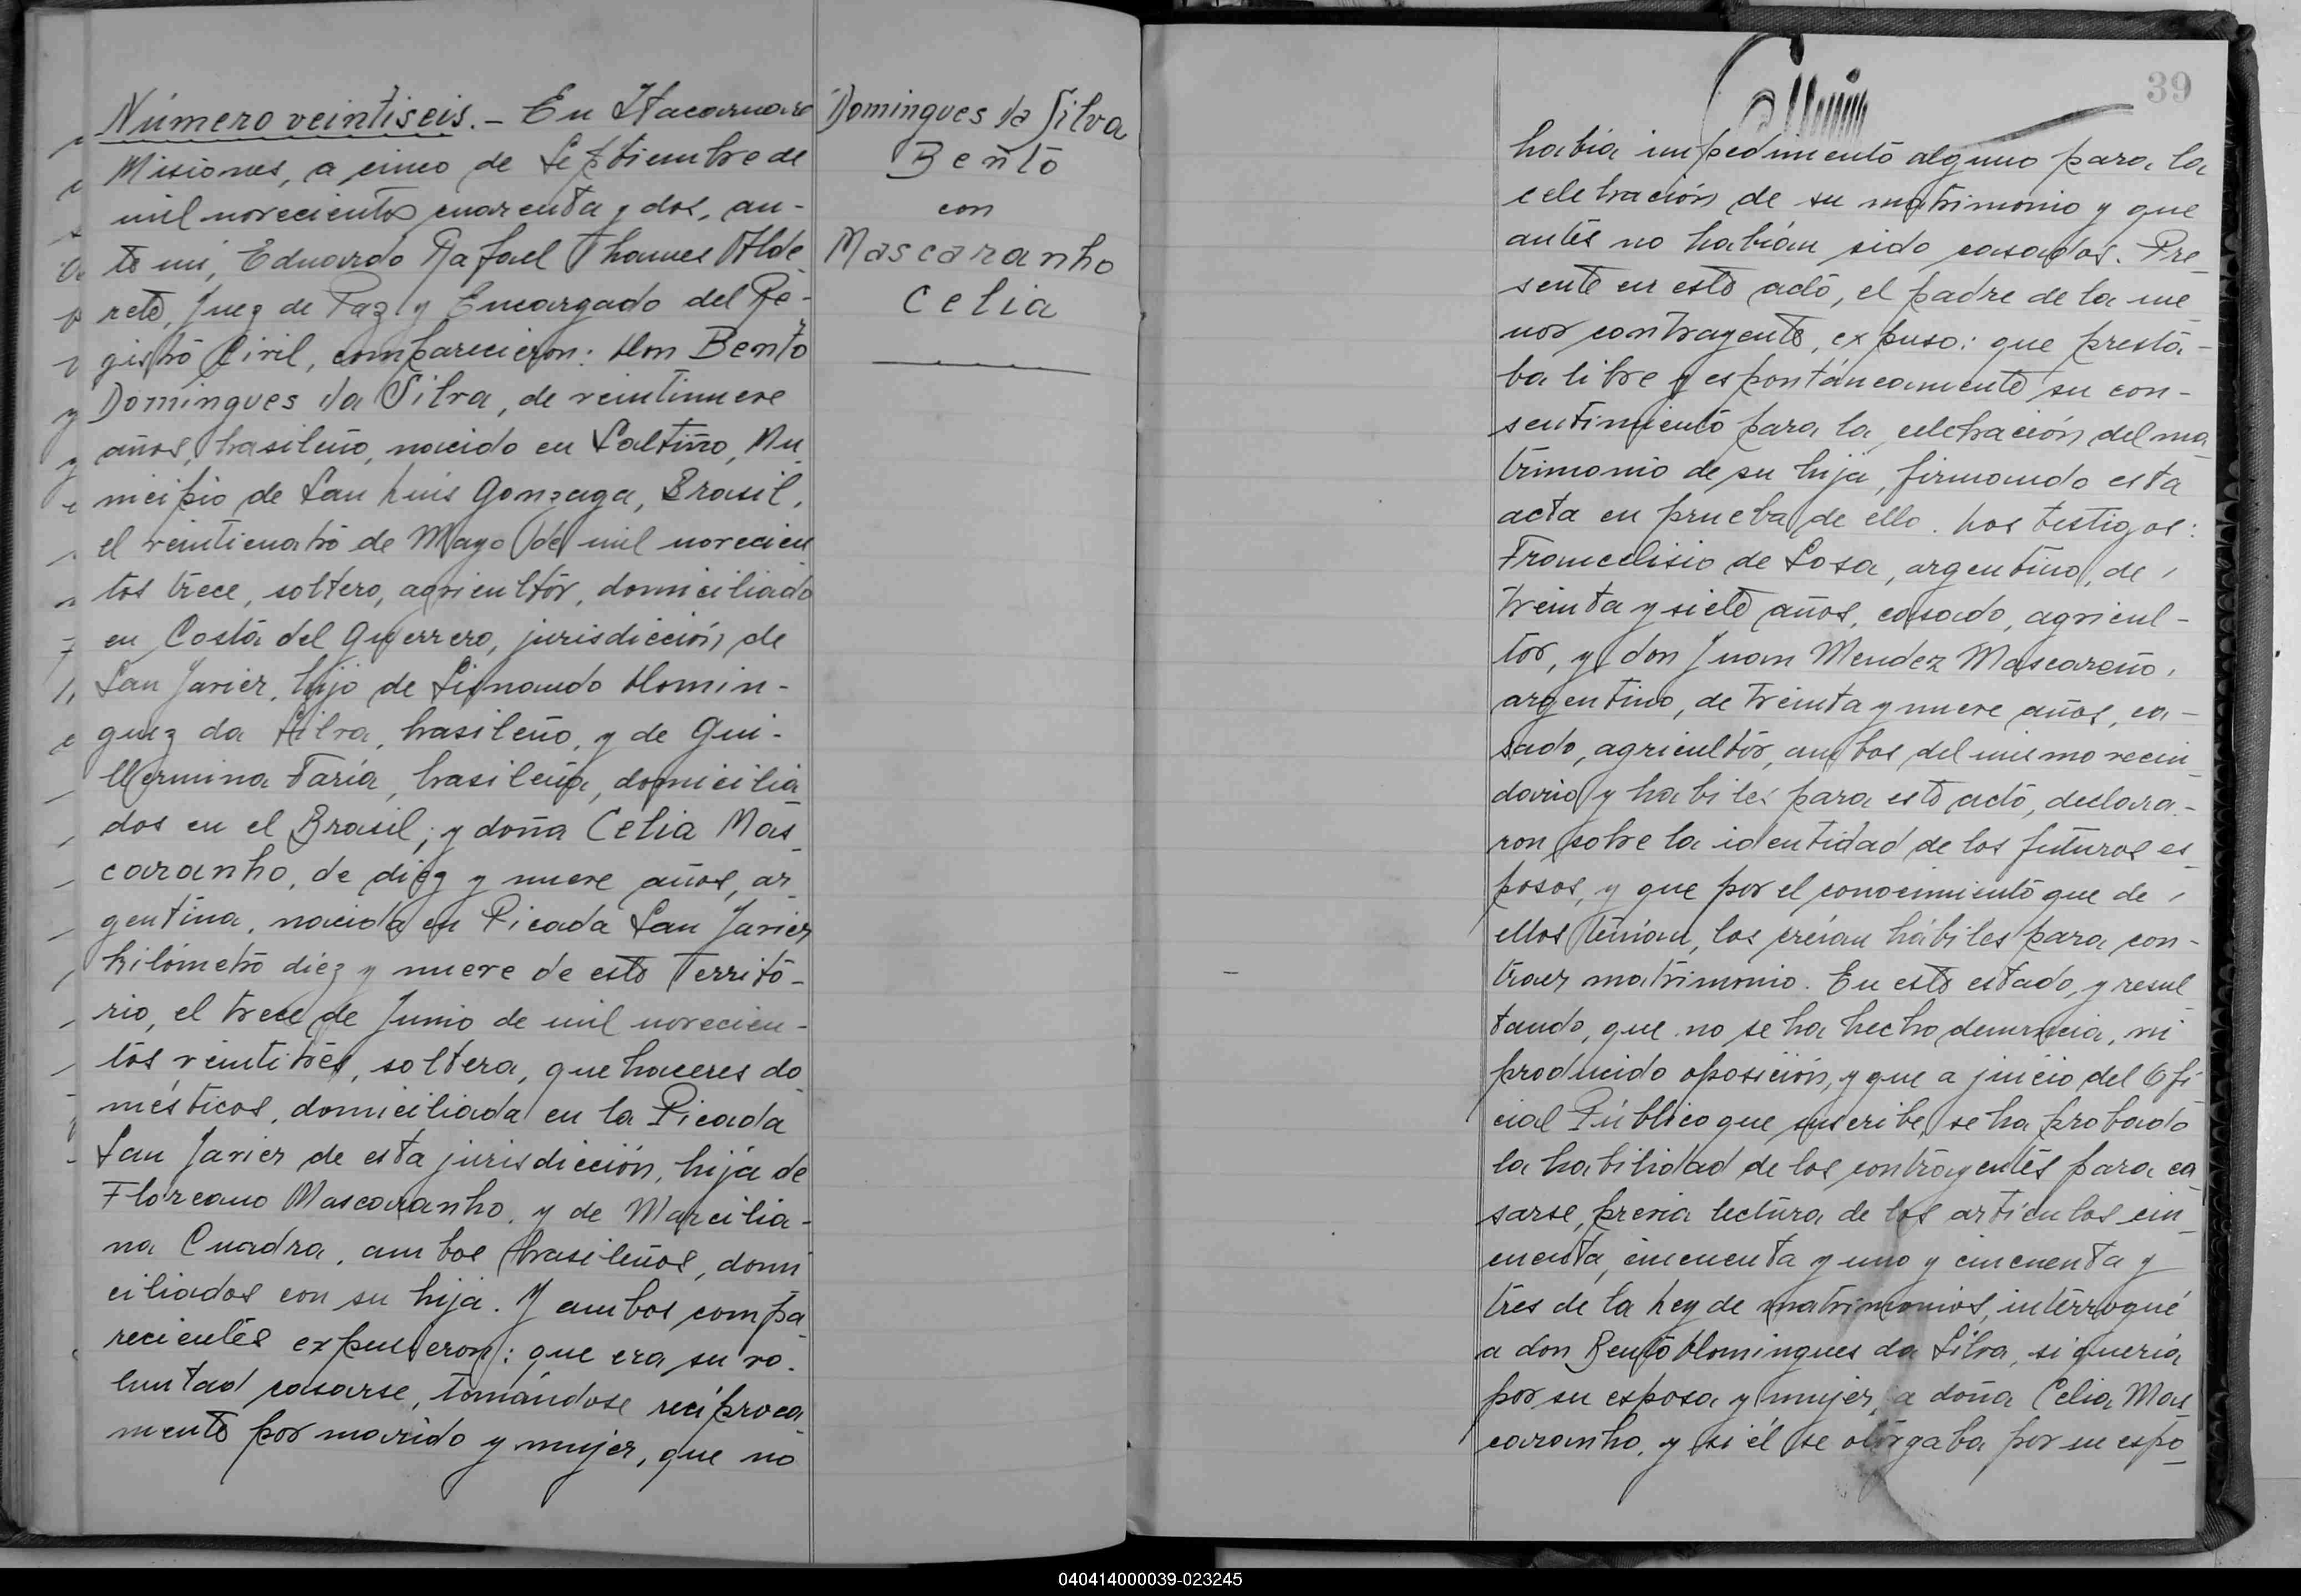 Número veintiseis. - En Itacaruare
Misiones, a cinco de Septiembre de
mil novecientos cuarenta y dos, an-
te mi, Eduardo Rafael Thames Alde
rete, Juez de Paz y Encargado del Re-
gistro Civil, comparecieron: don Bento
Domingues da Silva, de veintinueve
años, brasileño, nacido en Saltiño, Mu_
nicipio de San Luis Gonzaga, Brasil,
el veinticuatro de Mayo de mil novecien
tos trece, soltero, agricultor, domiciliado
en Costa del Guerrero, jurisdicción de
San Javier, hijo de Sisnando Domin-
guez da Silva, brasileño, y de Gui-
llermina Faria, brasileña, domicilia_
dos en el Brasil; y doña Celia Mas_
caranho, de diez y nueve años, ar_
gentina, nacida en Picada San Javier
kilómetro diez y nueve de este Territo-
rio, el trece de Junio de mil novecien-
tos veintitrés, soltera, quehaceres do_
mésticos, domiciliada en la Picada
San Javier de esta jurisdicción, hija de
Floreano Mascaranho, y de Marcilia-
na Cuadra, ambos brasileños, domi_
ciliados con su hija. Y ambos compa_
recientes expusieron: que era su vo-
luntad casarse, tomándose recíproca_
mente por marido y mujer, que no
Domingues da Silva
Bento
con
Mascaranho
Celia
39
había impedimento alguno para la
celebración de su matrimonio y que
antes no habían sido casados. Pre_
sente en este acto, el padre de la me_
nor contrayente, expuso: que presta-
ba libre y espontáneamente su con-
sentimiento para la celebración del ma_
trimonio de su hija, firmando esta
acta en prueba de ello. Los testigos:
Francelisio de Sosa, argentino, de
treinta y siete años, casado, agricul-
tor, y don Juan Mendez Mascareño,
argentino, de treinta y nueve años, ca-
sado, agricultor, ambos del mismo vecin_
dario y habiles para este acto, declara-
ron sobre la identidad de los futuros es_
posos, y que por el conocimiento que de
ellos tenían, los creían hábiles para con-
traer matrimonio. En este estado, y resul_
tando, que no se ha hecho denuncia, ni
producido oposición, y que a juicio del Ofi_
cial Público que suscribe, se ha probado
la habilidad de los contrayentes para ca_
sarse, previa lectura de los artículos cin_
cuenta, cincuenta y uno y cincuenta y
tres de la Ley de matrimonios, interrogué
a don Bento Domingues da Silva, si quería
por su esposa y mujer, a doña Celia Mas_
caranho, y si él se otorgaba por su espo_
040414000039-023245